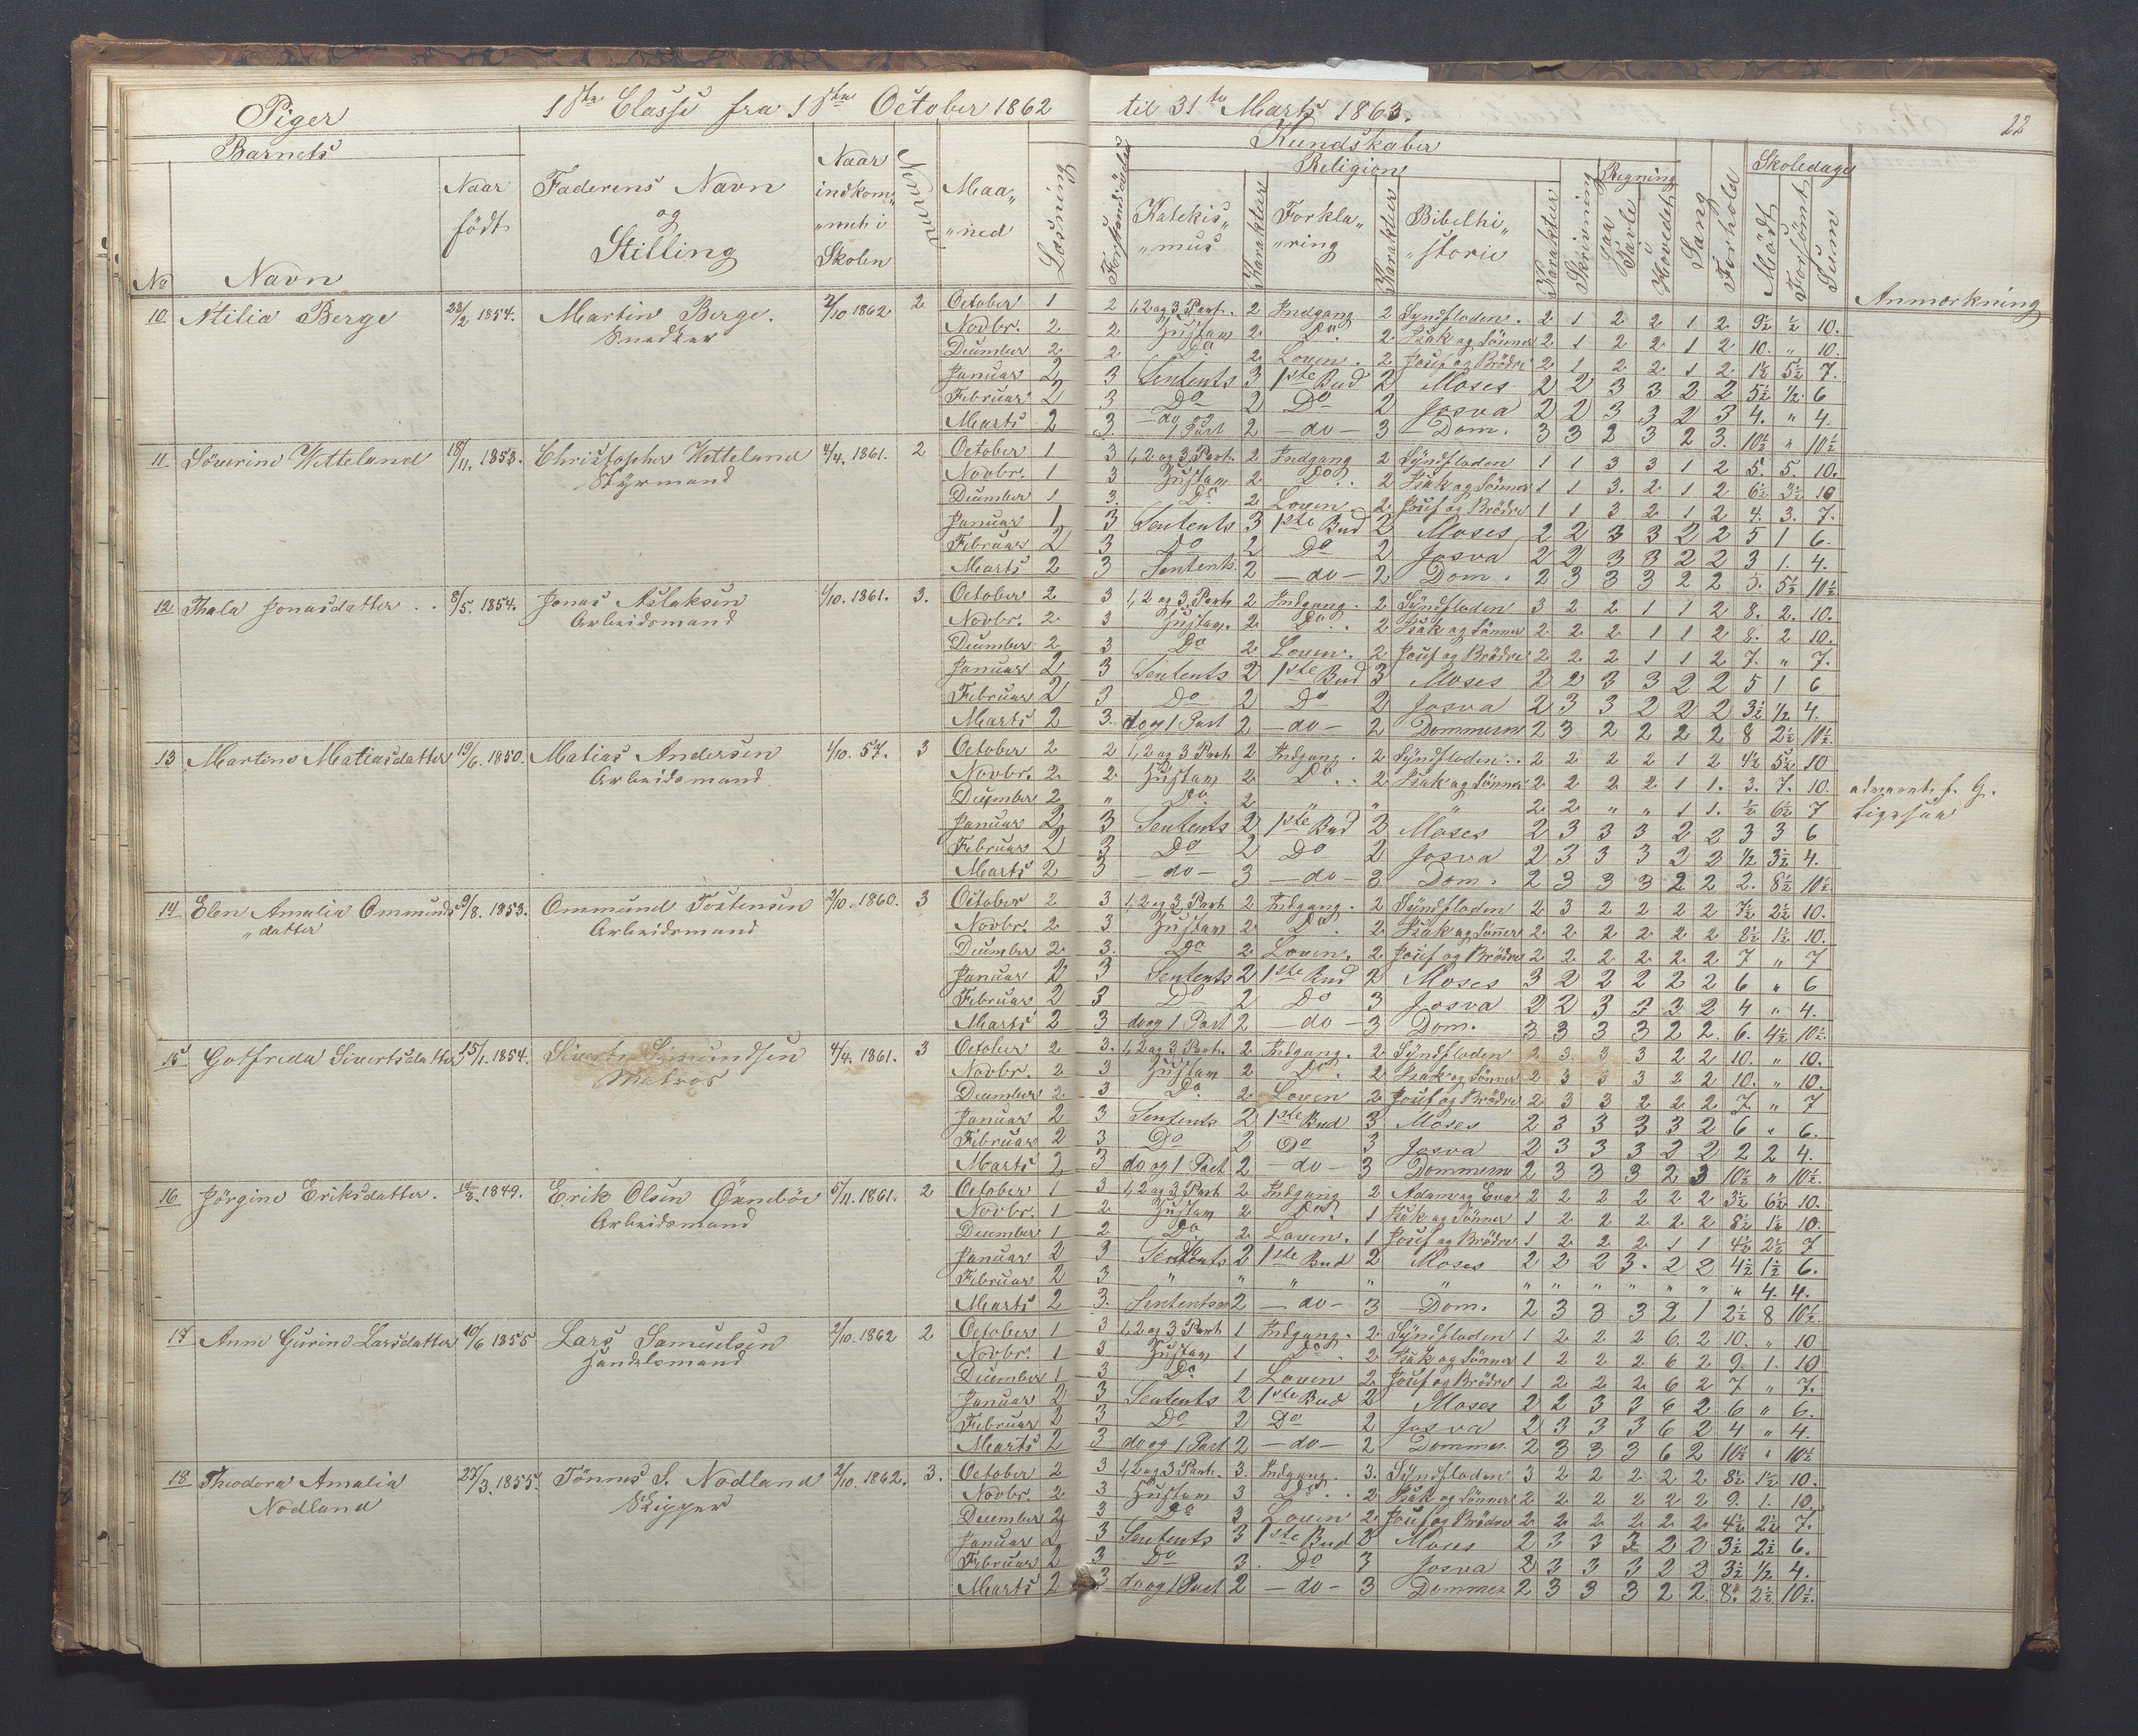 Piger 1ste Classe fra 1ste October 1862 til 31te Marts 1863. 22
Barnets Kundskaber
No Navn Naar födt Faderens Navn og Stilling Naar indkommet i Skolen Maaned Læsning Forstandsövelse Religion Katekismus Karakter Forklaring Karakter Bibelhistorie Karakter Skrivning Regning Paa Tavle Hovedet Sang Forhold Skoledage Mödt Forsömt Sum Anmærkning
10. Berge 23/2 1854. Martin Berge. 2/10 1862 2 October 1 2 1, 2 og 3 Part. 2 Indgang 2 Syndfloden. 2 1 2 2 1 2 9½ ½ 10.
Snedker Novbr. 2 2 2 Do. 2 Isak og Sönner 2 1 2 2 1 2 10. " 10.
December 2 2 Do 2 Loven. 2 Josef og Brödre 2 1 2 2 1 2 1½ 5½ 7.
Januar 2 3 Sentents 3 1ste Bud 2 Moses 2 2 3 3 2 2 5½ ½ 6
Februar 2 3 Do 2 Do 2 Josva 2 2 3 3 2 3 4. " 4.
Marts 2 3 do og 1 Part 2 - do - 3 Dom. 3 3 2 3 2 3 10½ " 10½
11 Sörine Witteland 18/11. 1853. Christopher Witteland 4/4. 1861. 2 October 1 3 1, 2 og 3 Part. 2 Indgang 2 Syndfloden 1 1 3 3 1 2 5. 5 10.
Styrmand Novbr. 1 3 2 Do. 2 Isak og Sönner 1 1 3. 2 1 2 6½ 3½ 10
December 1 3. Do 2 Loven. 2 Josef og Brödre 1 1 3 2 1 2 4. 3. 7.
Januar 1 3 Sentents 3 1ste Bud 2 Moses 2 2 3 3 2 2 5 1 6.
Februar 2 3 Do 2 Do 2 Josva 2 2 3 3 2 2 3 1. 4.
Marts 2 3 Sentents. 2 - do - 2 Dom. 2 3 3 3 2 2 5. 5½ 10½
12 Thala Jonasdatter 8/5. 1854. Jonas Aslaksen 1/10. 1861. 3. October 2 3 1, 2 og 3 Part 2 Indgang. 2 Syndfloden 3 2 2 1 1 2 8. 2. 10.
Arbeidsmand Novbr. 2 3 2 Do. 2 Isak og Sönner 2 2 2 1 1 2 8. 2 10.
December 2 3 Do 2 Loven. 2 Josef og Brödre 2 2 2 1 1 2 7. " 7.
Januar 2 3 Sentents 2 1ste Bud 3 Moses 2 2 3 3 2 2 5 1 6
Februar 2 3 Do 2 Do 2 Josva 2 3 3 2 2 2 3½ ½ 4.
Marts 2 3. do og 1 Part 2 - do - 2 Dommern 2 3 2 2 2 2 8 2½ 10½
13 Martine Matiasdatter 19/6. 1850. Matias Andersen 1/10. 57. 3 October 2 2 1, 2 og 3 Part 2 Indgang. 2 Syndfloden 2 2 2 2 1 2 4½ 5½ 10
Arbeidsmand Novbr. 2 2 2 Do. 2 Isak og Sönner 2 2 2 2 1 1. 3. 7. 10.
December 2 " Do 2 " " " 2 2 " " 1 1. ½ 6½ 7
Januar 2 3 Sentents 2 1ste Bud 2 Moses 2 3 3 3 2 2 3 3 6
Februar 2 3 Do 2 Do 2 Josva 2 3 3 3 2 2 ½ 3½ 4.
Marts 2 3 - do - 3 - do - 3 Dom. 2 3 3 3 2 2 2. 8½ 10½
14 Elen Amalia Ommunds 9/8. 1853. Ommund Tostensen 2/10. 1860. 3 October 2 3 1, 2 og 3 Part 2 Indgang. 2 Syndfloden 2 3 2 2 2 2 7½ 2½ 10.
"datter Arbeidsmand Novbr. 2 3 2 Do. 2 Isak og Sönner 2 2 2 2 2 2 8½ 1½ 10.
December 2 3. Do 2 Loven. 2 Josef og Brödre 2 2 2 2 2 2 7 " 7
Januar 2 3 Sentents 2 1ste Bud 2 Moses 3 2 2 2 2 2 6 " 6
Februar 2 3 Do 2 Do 3 Josva 2 2 3 3 3 2 4 " 4.
Marts 2 3 do og 1 Part 2 - do - 3 Dom. 3 3 3 3 2 2. 6. 4½ 10½
15 Gotfreda Sivertsdatter 15/1. 1854. Sivert Simundsen 4/4. 1861. 3 October 2 3. 1, 2 og 3 Part. 2 Indgang. 2 Syndfloden 2 3. 3 3 2 2 10. " 10.
Matros Novbr. 2 3 2 Do. 2 Isak og Sönner 2 3 3 3 2 2 10. " 10.
December 2 3 Do. 2 Loven 2 Josef og Brödre 2 3 3 2 2 2 7. " 7
Januar 2 3 Sentents 2 1ste Bud 3 Moses 2 3 3 3 3 2 6 " 6.
Februar 2 3 Do 2 Do 3 Josva 2 3 3 3 2 2 2 2 4.
Marts 2 3 do og 1 Part 2 - do - 3 Dommern 2 3 3 3 2 3 10½ " 10½.
16 Jörgine Eriksdatter. 1849. Erik Olsen 5/11. 1861. 2 October 1 3 1, 2 og 3 Part 2 Indgang 2 Adam og Eva 2 2 2 2 2 2 3½ 6½ 10.
Arbeidsmand Novbr. 1 2 2 Do. 1 Isak og Sönner 1 2 2 2 2 2 8½ 1½ 10.
December 1 2 Do. 2 Loven. 1 Josef og Brödre 1 2 2 2 1 1 4½ 2½ 7
Januar 2 3 Sentents 2 1ste Bud 2 Moses 2 2 2 3. 2 2 4½ 1½ 6.
Februar 2 3 " " " " " " " " " " " " 4. 4.
Marts 2 3. Sententsen 2 - do - 3 Dom. 2 3 3 3 2 1 2½ 8 10½
17 Anne Gurine Larsdatter 10/6 1855 Lars Samuelsen 2/10. 1862 2 October 1 3 1, 2 og 3 Part 1 Indgang. 2 Syndfloden 1 2 2 2 6 2 10. " 10
Handelsmand Novbr. 1 3. 1 Do. 2 Isak og Sönner 1 2 2 2 6 2 9. 1. 10
December 1 3 Do 1 Loven 2 Josef og Brödre 1 2 2 2 6 2 7 " 7.
Januar 2 3 Sentents 2 1ste Bud 2 Moses 2 2 3 3 6 2 6 " 6.
Februar 2 3 Do 2 Do 2 Josva 2 3 3 3 6 2 4 " 4.
Marts 2 3 do og 1 Part 2 - do - 2 Dommer 2 3 3 3 6 2 10½ " 10½
18 Theodora Amalia 27/3. 1855. Tönnes S. Nodland 2/10. 1862. 3. October 2 3 1, 2 og 3 Part. 3. Indgang. 3. Syndfloden 3 2 2 2 2 2 8½ 1½ 10.
Nodland Skipper Novbr. 2 3 3 Do. 2 Isak og Sönner 2 2 2 2 2 2 9. 1. 10.
December 2 3 Do 3 Loven 2 Josef og Brödre 2 2 2 2 2 2 4½ 2½ 7.
Januar 2 3 Sentents 3 1ste Bud 2 Moses 2 3 3 3 2 2 3½ 2½ 6.
Februar 2 3 Do 3. Do 3 Josva 2 3 3 3 2 2 3½ ½ 4.
Marts 2 3 do og 1 Part 2 - do - 3 Dommer 2 3 3 3 2 2. 8. 2½ 10½.